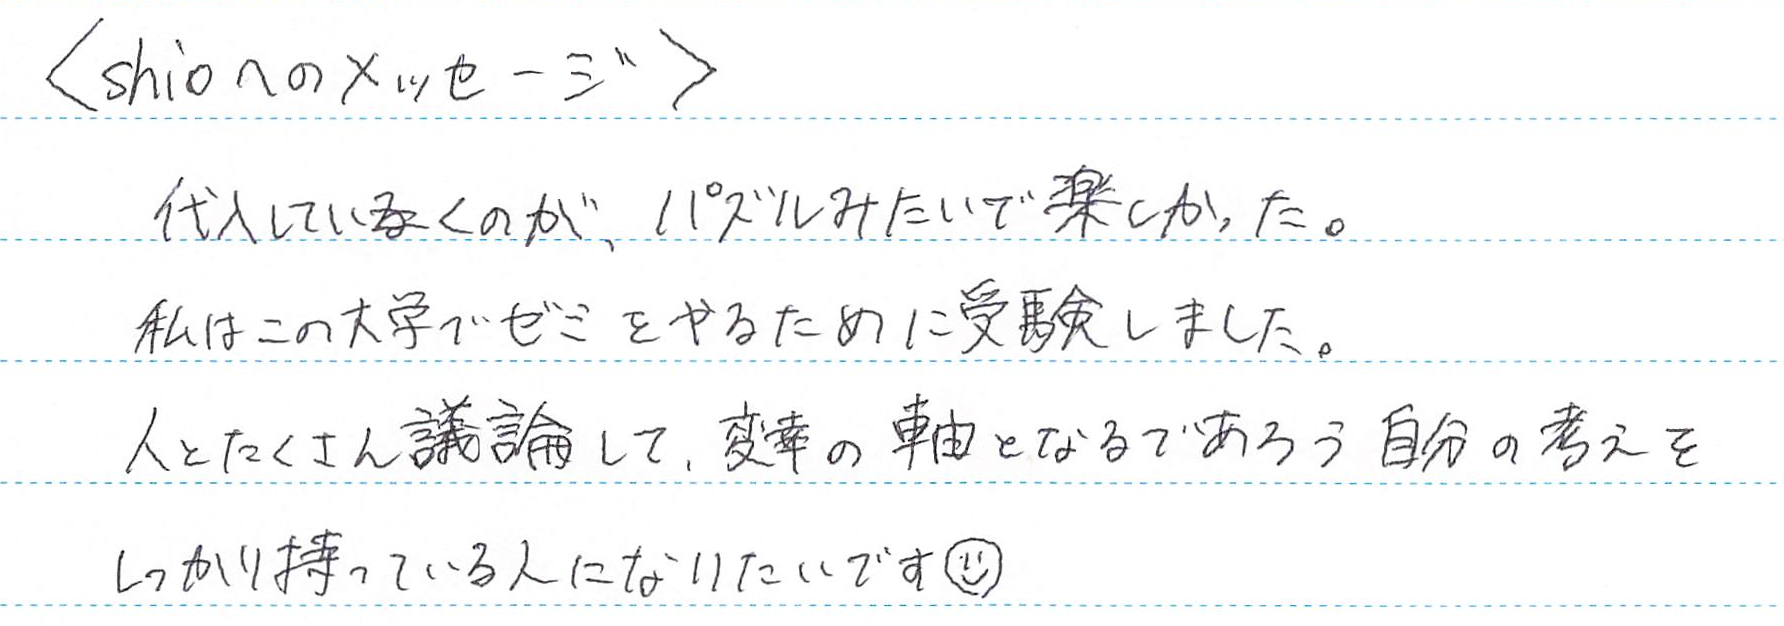 <shioへのメッセージ>
代入していくのが、パズルみたいで楽しかった。
私はこの大学でゼミをやるために受験しました。
人とたくさん議論して、変革の軸となるであろう自分の考えを
しっかり持っている人になりたいです☺